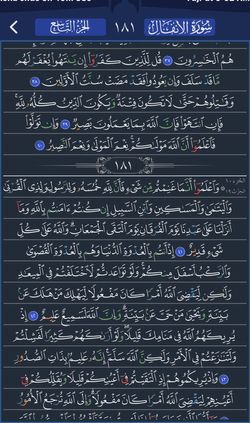 سُورَةُ الأَنفَال ١٨١ الجزء التاسع
هُمُ ٱلْخَٰسِرُونَ ٣٧ قُل لِّلَّذِينَ كَفَرُوٓا۟ إِن يَنتَهُوا۟ يُغْفَرْ لَهُم
مَّا قَدْ سَلَفَ وَإِن يَعُودُوا۟ فَقَدْ مَضَتْ سُنَّتُ ٱلْأَوَّلِينَ ٣٨
وَقَٰتِلُوهُمْ حَتَّىٰ لَا تَكُونَ فِتْنَةٌ وَيَكُونَ ٱلدِّينُ كُلُّهُۥ لِلَّهِ
فَإِنِ ٱنتَهَوْا۟ فَإِنَّ ٱللَّهَ بِمَا يَعْمَلُونَ بَصِيرٌ ٣٩ وَإِن تَوَلَّوْا۟
فَٱعْلَمُوٓا۟ أَنَّ ٱللَّهَ مَوْلَىٰكُمْ نِعْمَ ٱلْمَوْلَىٰ وَنِعْمَ ٱلنَّصِيرُ ٤٠
١٨١
وَٱعْلَمُوٓا۟ أَنَّمَا غَنِمْتُم مِّن شَىْءٍ فَأَنَّ لِلَّهِ خُمُسَهُۥ وَلِلرَّسُولِ وَلِذِى ٱلْقُرْبَىٰ
وَٱلْيَتَٰمَىٰ وَٱلْمَسَٰكِينِ وَٱبْنِ ٱلسَّبِيلِ إِن كُنتُمْ ءَامَنتُم بِٱللَّهِ وَمَآ
أَنزَلْنَا عَلَىٰ عَبْدِنَا يَوْمَ ٱلْفُرْقَانِ يَوْمَ ٱلْتَقَى ٱلْجَمْعَانِ وَٱللَّهُ عَلَىٰ كُلِّ
شَىْءٍ قَدِيرٌ ٤١ إِذْ أَنتُم بِٱلْعُدْوَةِ ٱلدُّنْيَا وَهُم بِٱلْعُدْوَةِ ٱلْقُصْوَىٰ
وَٱلرَّكْبُ أَسْفَلَ مِنكُمْ وَلَوْ تَوَاعَدتُّمْ لَٱخْتَلَفْتُمْ فِى ٱلْمِيعَٰدِ
وَلَٰكِن لِّيَقْضِىَ ٱللَّهُ أَمْرًا كَانَ مَفْعُولًا لِّيَهْلِكَ مَنْ هَلَكَ عَنۢ
بَيِّنَةٍ وَيَحْيَىٰ مَنْ حَىَّ عَنۢ بَيِّنَةٍ وَإِنَّ ٱللَّهَ لَسَمِيعٌ عَلِيمٌ ٤٢ إِذْ
يُرِيكَهُمُ ٱللَّهُ فِى مَنَامِكَ قَلِيلًا وَلَوْ أَرَىٰكَهُمْ كَثِيرًا لَّفَشِلْتُمْ
وَلَتَنَٰزَعْتُمْ فِى ٱلْأَمْرِ وَلَٰكِنَّ ٱللَّهَ سَلَّمَ إِنَّهُۥ عَلِيمٌۢ بِذَاتِ ٱلصُّدُورِ
٤٣ وَإِذْ يُرِيكُمُوهُمْ إِذِ ٱلْتَقَيْتُمْ فِىٓ أَعْيُنِكُمْ قَلِيلًا وَيُقَلِّلُكُمْ فِىٓ
أَعْيُنِهِمْ لِيَقْضِىَ ٱللَّهُ أَمْرًا كَانَ مَفْعُولًا وَإِلَى ٱللَّهِ تُرْجَعُ ٱلْأُمُورُ